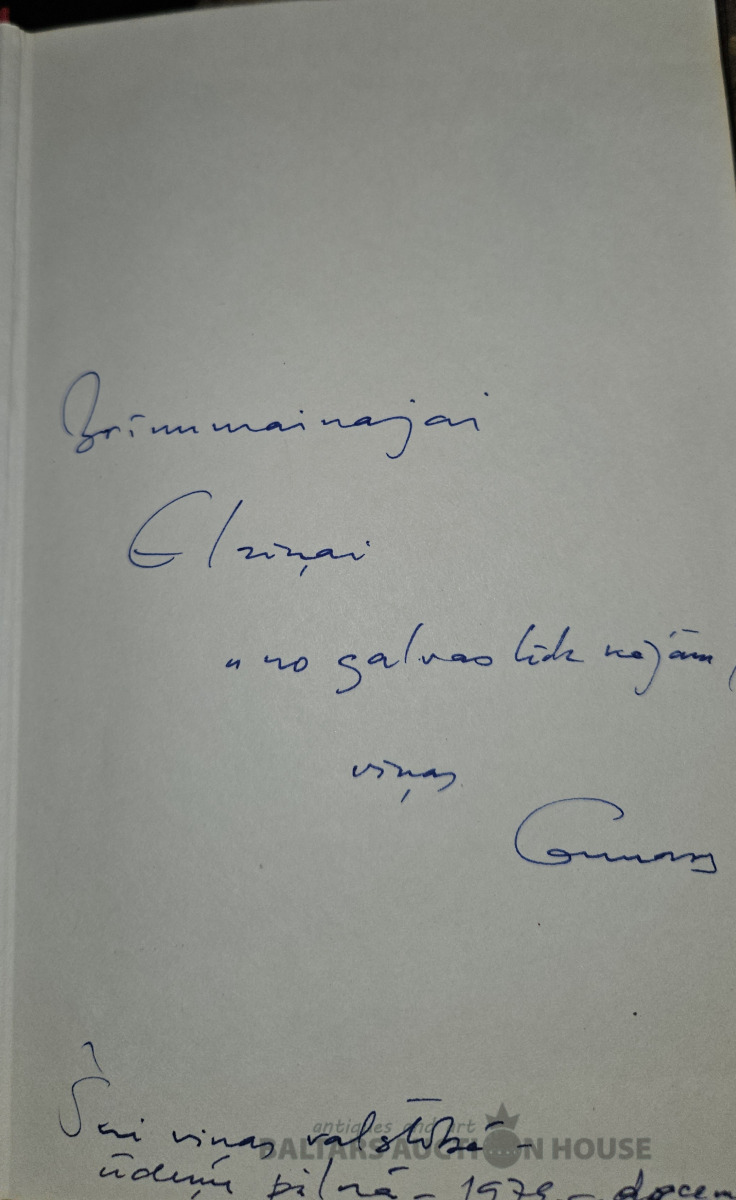 Brīnumainajai
Elziņai
" no galvas līdz kājām,
viņas
Gunars
Šai viņas valstībā -
ūdeņu pilnā - 1979 -
antiques and art
BALTARS AUCTION HOUSE